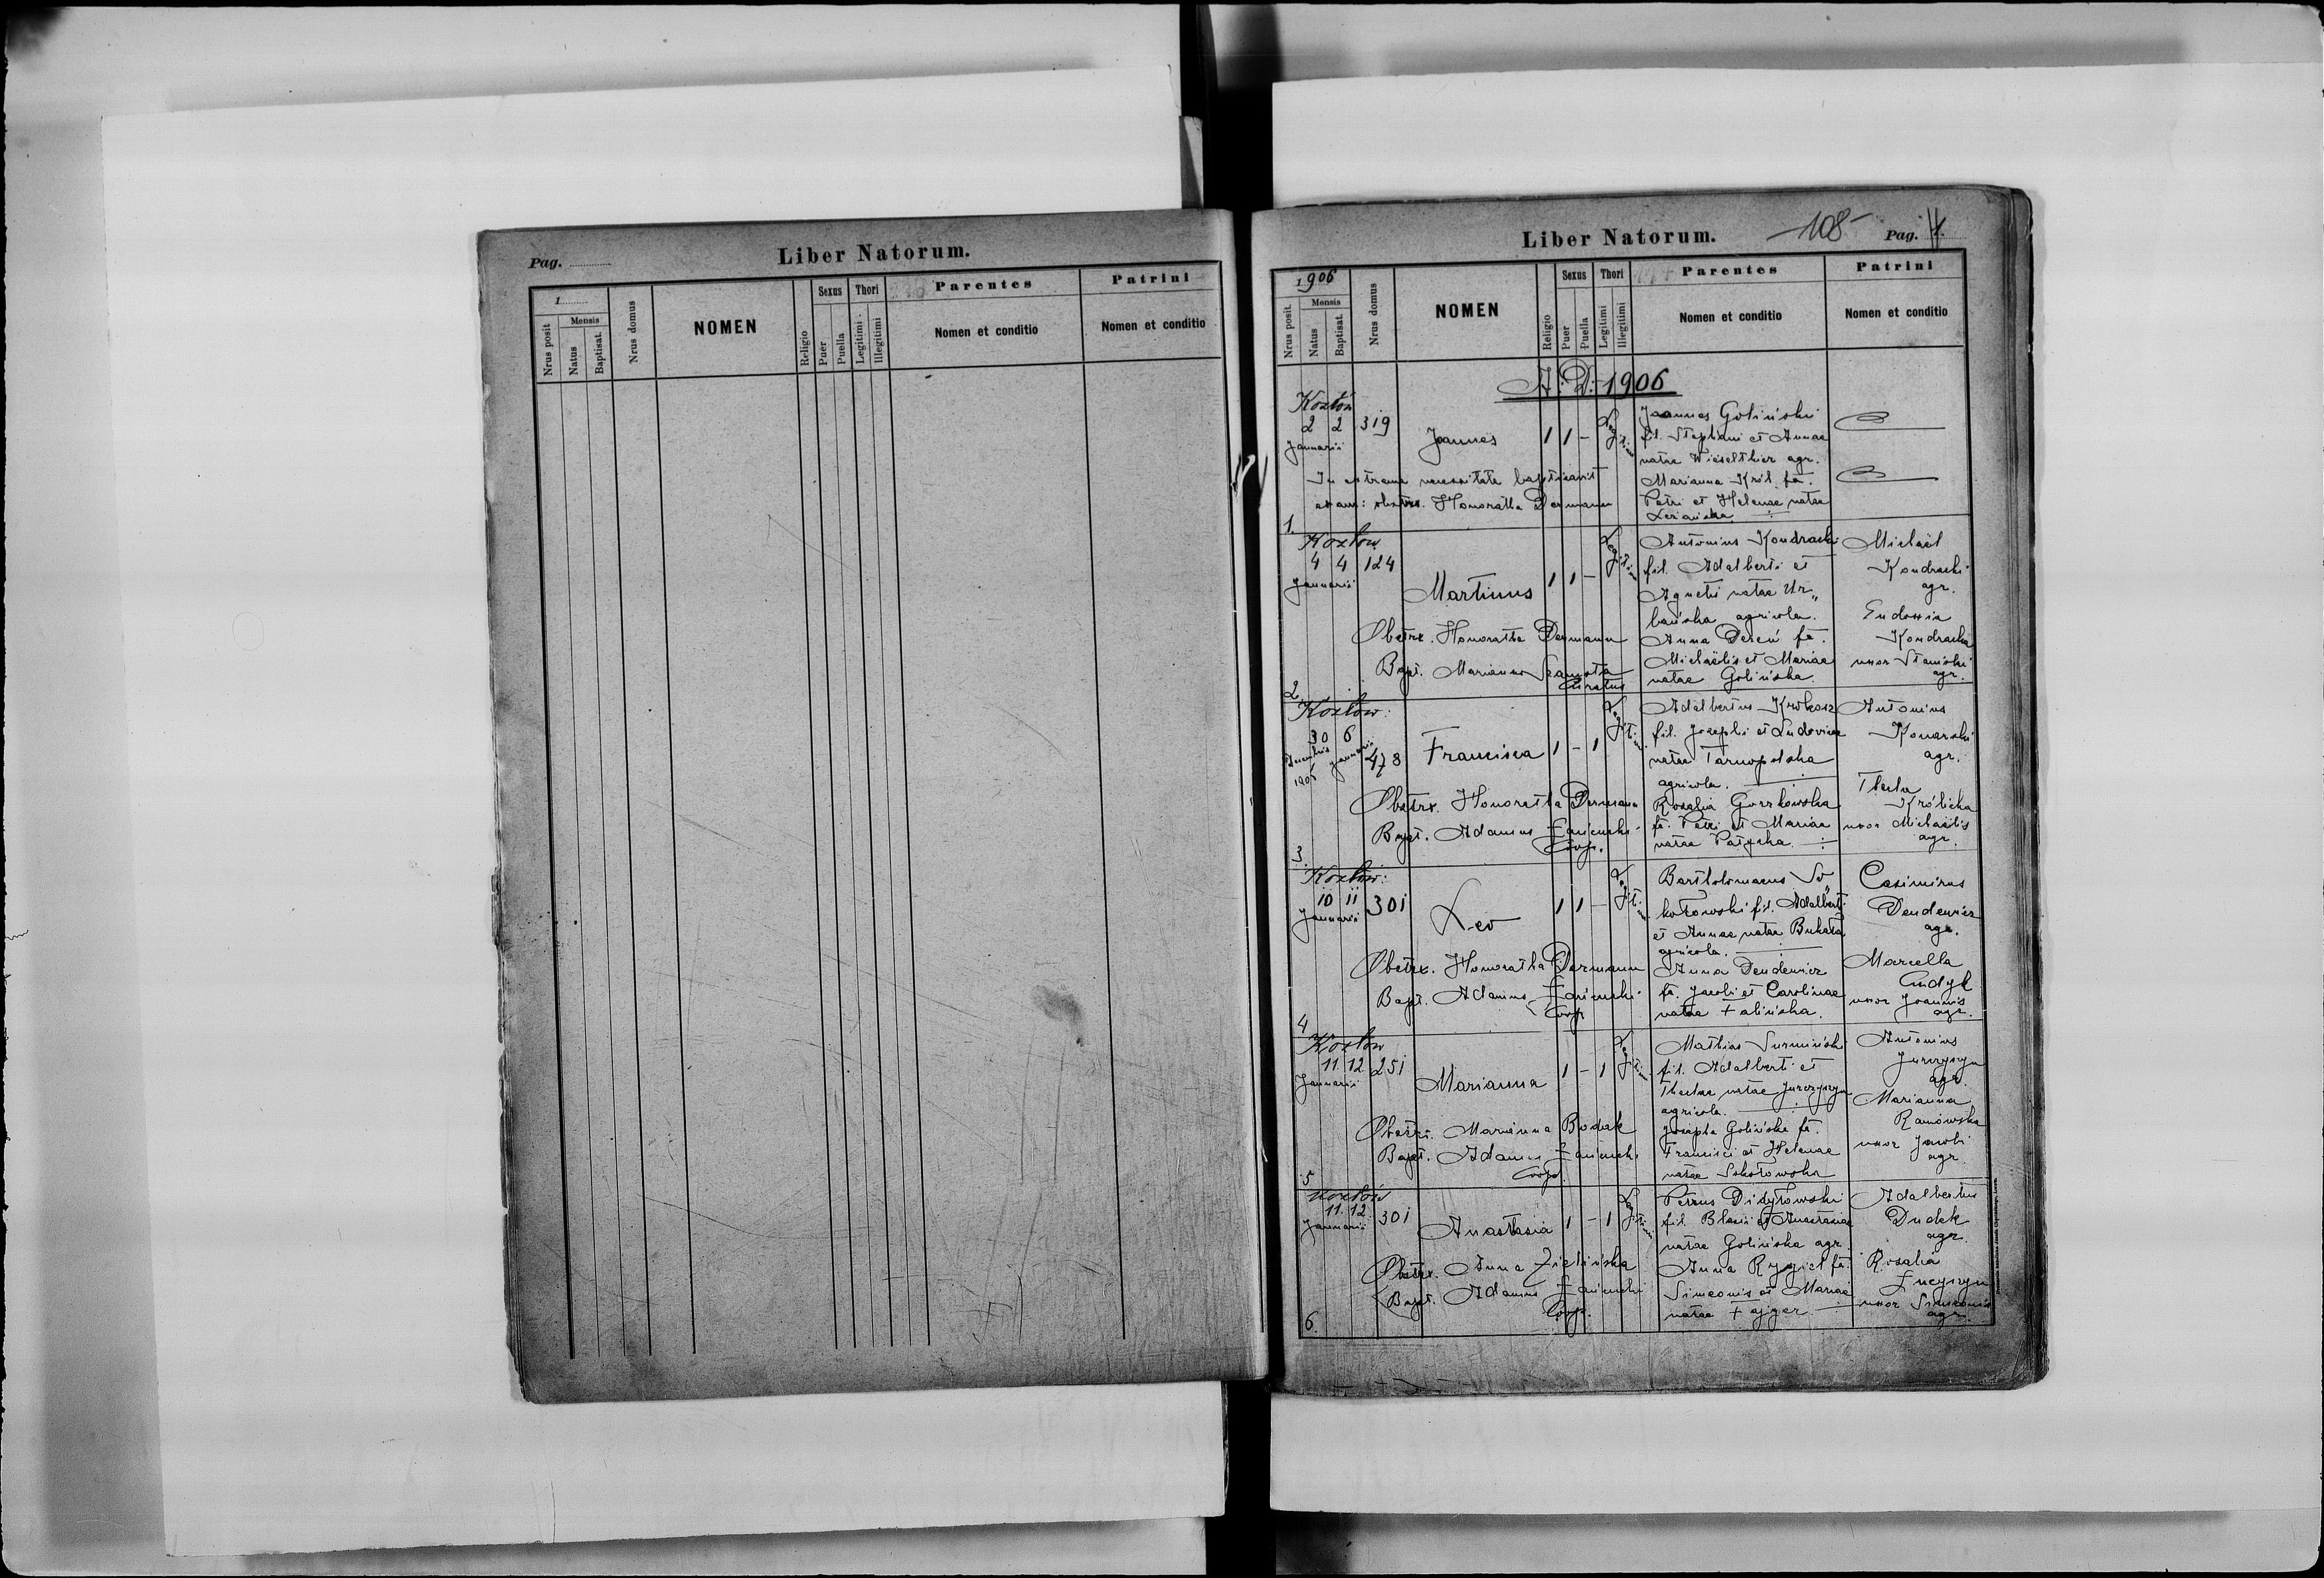 Pag.
Liber Natorum.
1
Nrus posit
Mensis
Natus
Baptisat.
Nrus domus
NOMEN
Religio
Sexus
Puer
Puella
Thori
Legitimi
Illegitimi
Parentes
Nomen et conditio
Patrini
Nomen et conditio
Liber Natorum.
-108-
Pag. 1.
1906
Nrus posit.
Mensis
Natus
Baptisat.
Nrus domus
NOMEN
Religio
Sexus
Puer
Puella
Thori
Legitimi
Illegitimi
Parentes
Nomen et conditio
Patrini
Nomen et conditio
A. D. 1906
1.
Kozłów
2 2 319
Januarii
Joannes
1 1 -
Legitimi
Joannes Goliński
fil. Stephani et Annae
natae Wieselthier agr.
Marianna Król fa.
Petri et Helenae natae
In extrema necessitate baptisavit
obstrx. Honoratha Dermann
2.
Kozłów
4 4 124
Januarii
Martinus
1 1 -
Legitimi
Antonius Kondracki
fil. Adalberti et
Agnetis natae Ur„
bańska agricola.
Anna Dereń fa.
Michaëlis et Mariae
natae Golińska.
Michaël
Kondracki
agr.
Eudoxia
Kondracka
uxor Stanislai
agr.
Obstrx. Honoratha Dermann
Bapt. Marianus Szamota
Curatus
3.
Kozłów:
30 6
Decembris Januarii
1905
478
Francisca
1 - 1
Legitimi
Adalbertus Krokosz
fil. Josephi et Ludovicae
natae Tarnopolska
agricola.
Rosalia Gorzkowska
fa. Petri et Mariae
natae
Antonius
Konarski
agr.
Thecla
Królicka
uxor Michaëlis
agr.
Obstrx. Honoratha Dermann
Bapt. Adamus Łańcucki
Coop.
4
Kozłów:
10 11 301
Januarii
Leo
1 1 -
Legitimi
Bartholomaeus So„
kołowski fil. Adalberti
et Annae natae Bukała
agricola.
Anna Dendewicz
fa. Jacobi et Carolinae
natae Falińska.
Casimirus
Dendewicz
agr.
Marcella
uxor Joannis
agr.
Obstrx. Honoratha Dermann
Bapt. Adamus Łańcucki
Coop.
5
Kozłów
11 12 251
Januarii
Marianna
1 - 1
Legitimi
Mathias Surmiński
fil. Adalberti et
Theclae natae Jurczyszyn
agricola.
Josepha Golińska fa.
Francisci et Helenae
natae Sokołowska
Antonius
Jurczyszyn
agr.
Marianna
Ramówska
uxor Jacobi
agr.
Obstrx. Marianna Bodak
Bapt. Adamus Łańcucki
Coop.
6.
Kozłów
11. 12. 301
Januarii
Anastasia
1 - 1
Legitimi
Petrus Didyłowski
fil. Blasii et Anastasiae
natae Golińska agr.
Anna Rygiel fa.
Simeonis et Mariae
natae Fajger
Adalbertus
Dudek
agr.
Rosalia
uxor Simeonis
agr.
Obstrx. Anna Zielińska
Bapt. Adamus Łańcucki
Coop.